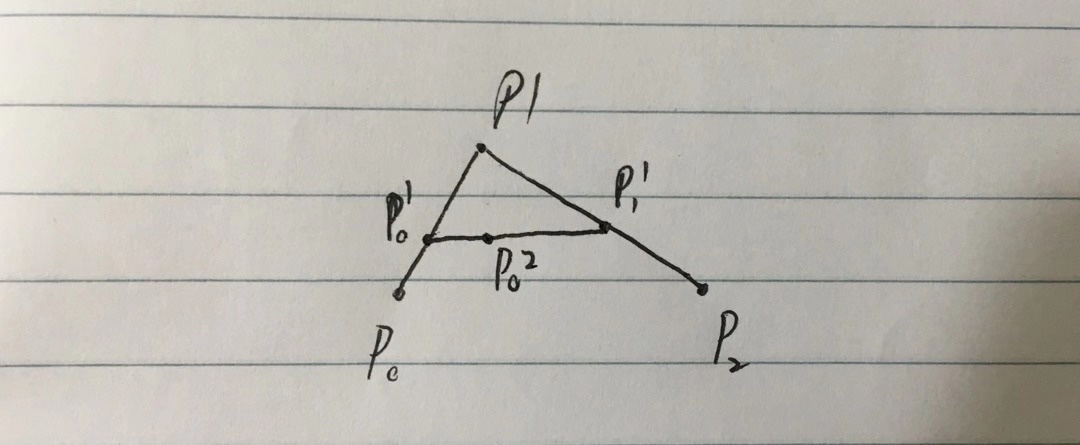 P1
P₀¹ P₁¹
P₀²
P₀ P₂